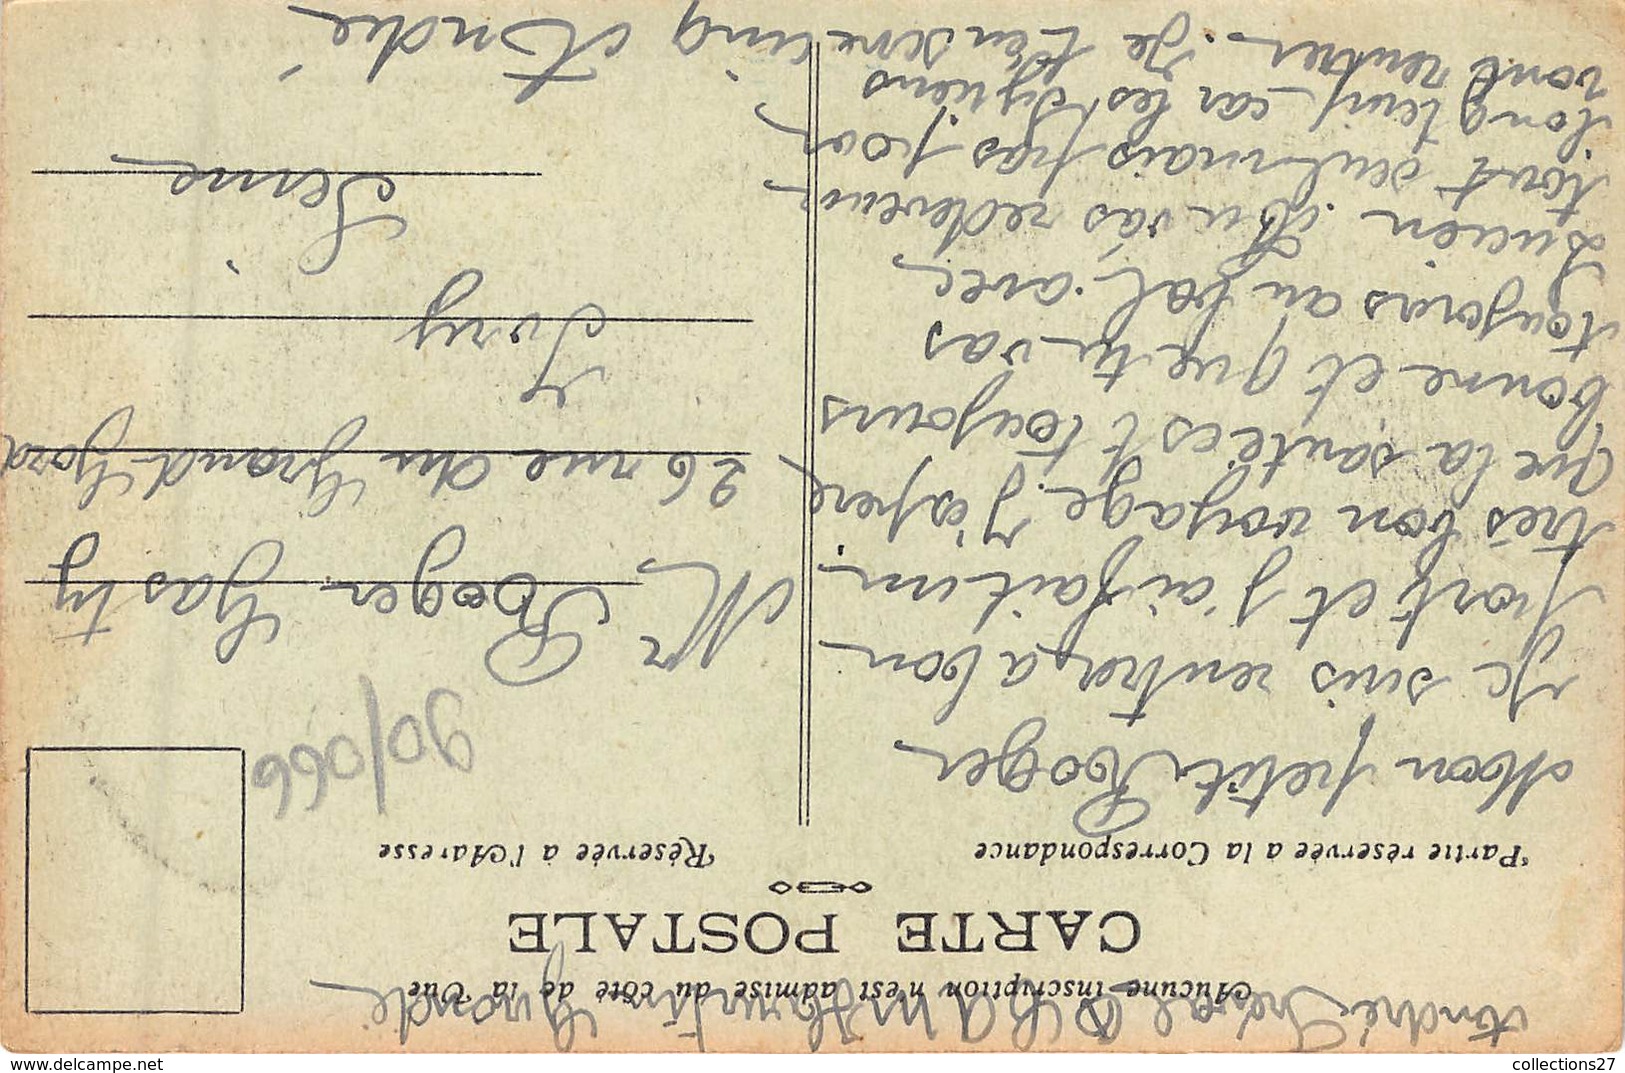 Aucune inscription n'est admise du côté de la Vue
CARTE POSTALE
Partie réservée à la Correspondance
Mon petit Roger
Je suis rentrer a bon
Port et j'ai fait un
très bon voyage. J'espère
que la santé est toujours
bonne et que tu vas
toujours au bal avec
Lucien. Tu vas redevenir
tout seul mais pas pour
longtemps car les Syriens
vont rentrer. Je t'en serre
cinq André
Réservée à l'Adresse
90/066
Mr Roger Gasty
26 rue du Grand Gord
Ivry
Seine
André
Gironde
delcampe.net
collections27